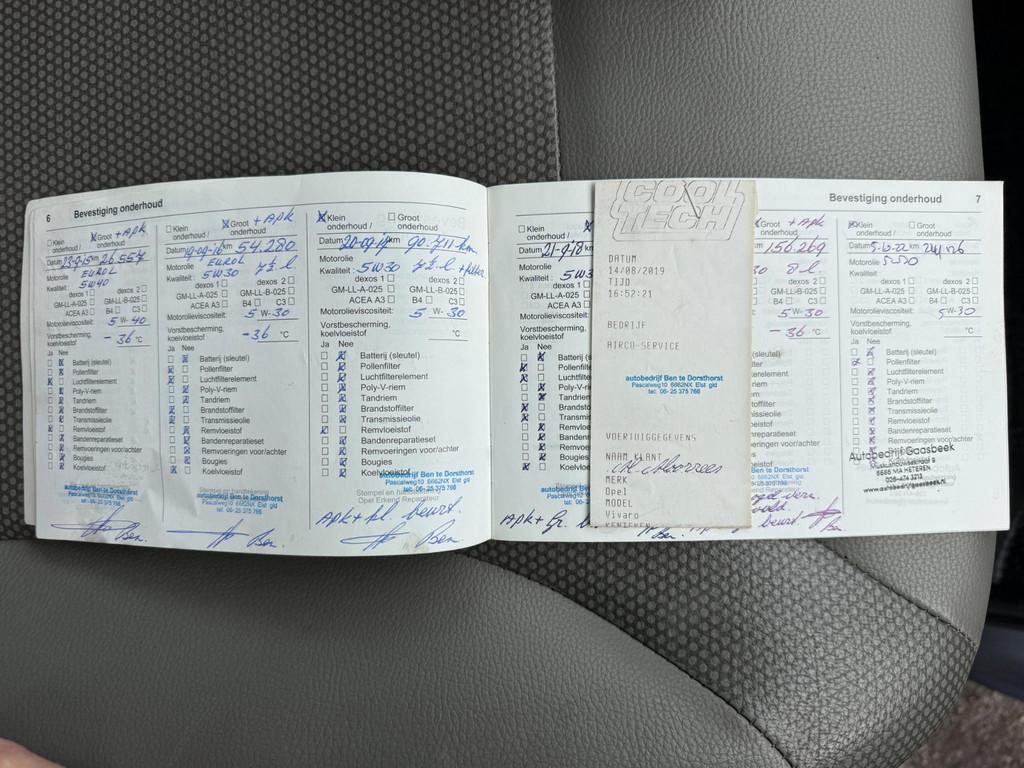 6 Bevestiging onderhoud
Klein onderhoud / Groot onderhoud + Apk
Datum 23-9-15 km 26.557
Motorolie EUROL
Kwaliteit: 5W40
dexos 1 dexos 2
GM-LL-A-025 GM-LL-B-025
ACEA A3 B4 C3
Motorolieviscositeit: 5 W-40
Vorstbescherming, koelvloeistof -36 °C
Ja Nee
Batterij (sleutel)
Pollenfilter
Luchtfilterelement
Poly-V-riem
Tandriem
Brandstoffilter
Transmissieolie
Remvloeistof
Bandenreparatieset
Remvoeringen voor/achter
Bougies
Koelvloeistof
autobedrijf Ben te Dorsthorst
Pascalweg10 6662NX Elst gld
tel: 06- 25 375 766
Ben.
Klein onderhoud / Groot onderhoud + Apk
km 54.280
Motorolie EUROL
Kwaliteit: 5W30 7½ l.
dexos 1 dexos 2
GM-LL-A-025 GM-LL-B-025
ACEA A3 B4 C3
Motorolieviscositeit: 5 W-30
Vorstbescherming, koelvloeistof -36 °C
Ja Nee
Batterij (sleutel)
Pollenfilter
Luchtfilterelement
Poly-V-riem
Tandriem
Brandstoffilter
Transmissieolie
Remvloeistof
Bandenreparatieset
Remvoeringen voor/achter
Bougies
Koelvloeistof
autobedrijf Ben te Dorsthorst
Pascalweg10 6662NX Elst gld
tel: 06- 25 375 766
Ben.
Klein onderhoud / Groot onderhoud
Datum 20-09-17 km 90.711 km
Motorolie
Kwaliteit: 5W30 7½ l. + filter
dexos 1 dexos 2
GM-LL-A-025 GM-LL-B-025
ACEA A3 B4 C3
Motorolieviscositeit: 5 W-30
Vorstbescherming, koelvloeistof °C
Ja Nee
Batterij (sleutel)
Pollenfilter
Luchtfilterelement
Poly-V-riem
Tandriem
Brandstoffilter
Transmissieolie
Remvloeistof
Bandenreparatieset
Remvoeringen voor/achter
Bougies
Koelvloeistof
autobedrijf Ben te Dorsthorst
Pascalweg10 6662NX Elst gld
tel: 06- 25 375 766
Stempel en handtekening
Opel Erkend Reparateur
Apk + kl. beurt.
Ben.
Bevestiging onderhoud 7
Klein onderhoud /
Datum 21-9-18 km
Motorolie
Kwaliteit: 5W3
dexos 1
GM-LL-A-025
ACEA A3
Motorolieviscositeit:
Vorstbescherming, koelvloeistof
Ja Nee
Batterij (sleutel)
Pollenfilter
Luchtfilterelement
Poly-V-riem
Tandriem
Brandstoffilter
Transmissieolie
Remvloeistof
Bandenreparatieset
Remvoeringen
Bougies
Koelvloeistof
Apk + Gr.
Ben.
COOL TECH
DATUM
14/08/2019
TIJD
16:52:21
BEDRIJF
AIRCO-SERVICE
autobedrijf Ben te Dorsthorst
Pascalweg10 6662NX Elst gld
tel: 06- 25 375 766
VOERTUIGGEGEVENS
NAAM KLANT
MERK
Opel
MODEL
Vivaro
KENTEKEN
Groot onderhoud + Apk
156.269
30 8 l.
dexos 2
GM-LL-B-025
B4 C3
5 W-30
-36 °C
(sleutel)
voor/achter
beurt.
Ben.
Klein onderhoud / Groot onderhoud
Motorolie
Kwaliteit:
dexos 1 dexos 2
GM-LL-A-025 GM-LL-B-025
ACEA A3 B4 C3
Motorolieviscositeit: 5W-30
Vorstbescherming, koelvloeistof °C
Ja Nee
Batterij (sleutel)
Pollenfilter
Luchtfilterelement
Poly-V-riem
Tandriem
Brandstoffilter
Transmissieolie
Remvloeistof
Bandenreparatieset
Remvoeringen voor/achter
Autobedrijf Gaasbeek
6666 MA HETEREN
026-474 3213
www.autobedrijfgaasbeek.nl